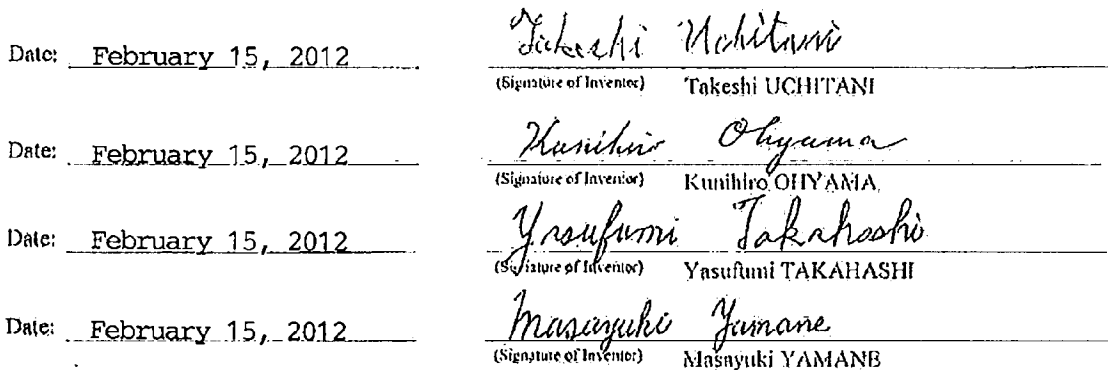 Date: February 15, 2012 Takeshi Uchitani
(Signature of Inventor) Takeshi UCHITANI
Date: February 15, 2012 Kunihiro Ohyama
(Signature of Inventor) Kunihiro OHYAMA
Date: February 15, 2012 Yasufumi Takahashi
(Signature of Inventor) Yasufumi TAKAHASHI
Date: February 15, 2012 Masayuki Yamane
(Signature of Inventor) Masayuki YAMANE